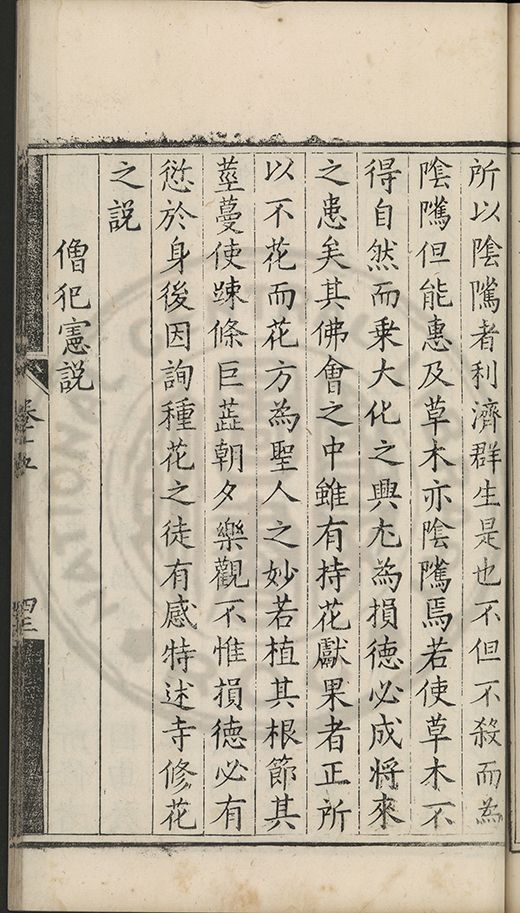 所以陰騭者利濟群生是也不但不殺而為
陰騭但能惠及草木亦陰騭焉若使草木不
得自然而乗大化之興尤為損德必成將來
之患矣其佛會之中雖有持花獻果者正所
以不花而花方為聖人之妙若植其根節其
莖蔓使踈條巨蕋朝夕樂觀不惟損德必有
愆於身後因詢種花之徒有感特述寺修花
之說
僧犯憲說